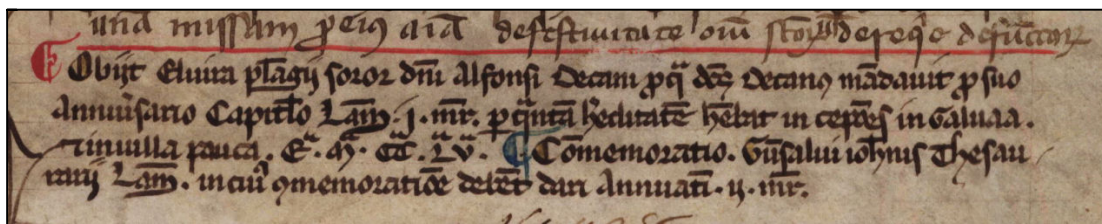 unã missam p eius aiã de festiuitate oĩu stoꝝ de reqẽ defunctoꝝ
Obijt Eluira plagij soror dñi Alfonsi Decani p qª dc̃s Decanꝰ mãdauit p suo
anniũsario Capitl̃o Lam̃. j. mr̃. p qntã h̓editatẽ hẽbat in cepões in Galuaa.
⁊ in uilla pauca. Eª. Mª. CCª. Lª Vª. Cõmemoratio. Gũsalui ioh̃nis Thesau
rarij Lam̃. in cui᷒ ꝯmemoratiõe debẽt dari Annuati᷑. ij. mr̃.